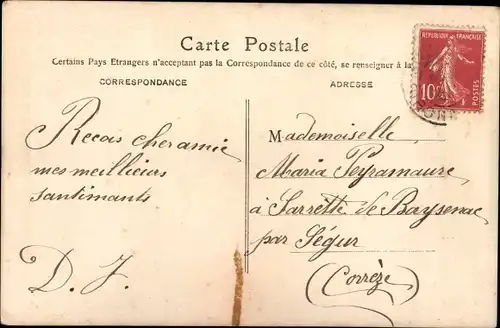 Carte Postale
Certains Pays Etrangers n'acceptant pas la Correspondance de ce côté, se renseigner à la
CORRESPONDANCE
ADRESSE
REPUBLIQUE FRANÇAISE
10
POSTES
Recois cher amie
mes meillieurs
santimants
D. J.
Mademoiselle
Maria Peyramaure
à Sarrette de Bayssenac
par Ségur
(Corrèze)